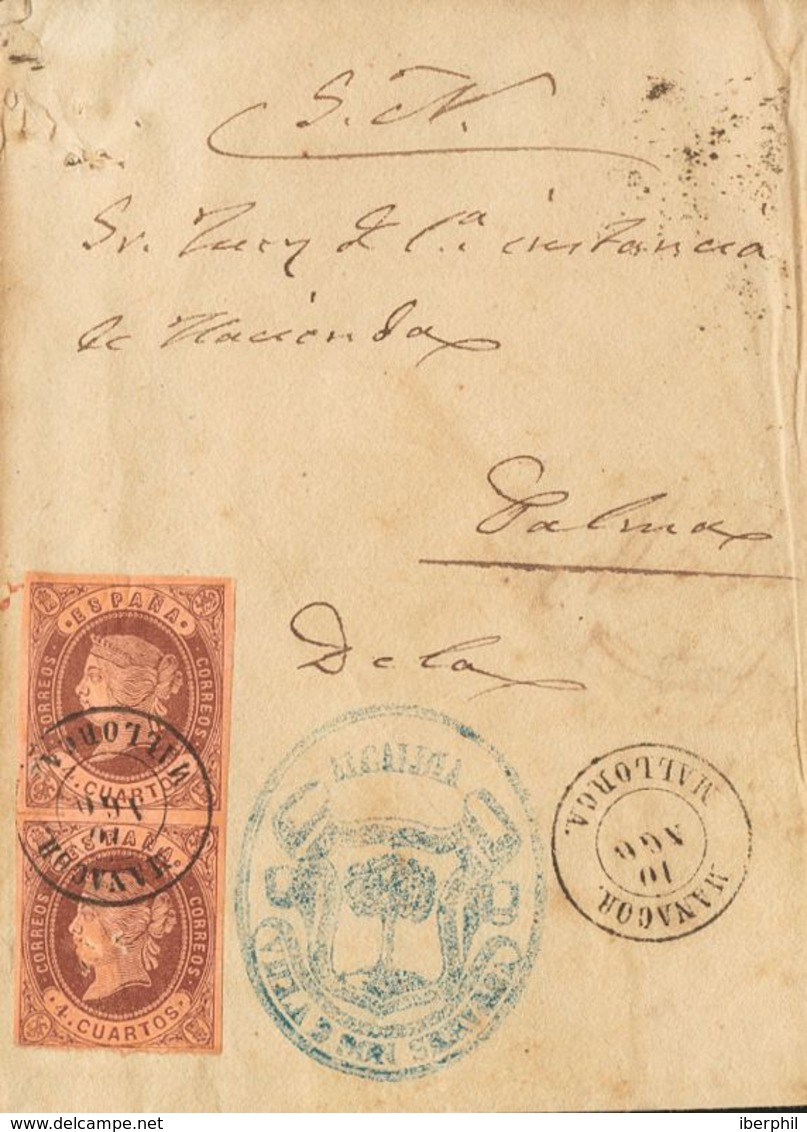 S. N.
Sr. Juez de 1.ª instancia
de Hacienda
Palma
De la
ESPAÑA
CORREOS
CORREOS
4. CUARTOS
MANACOR.
10
AGO
MALLORCA.
ESPAÑA
CORREOS
CORREOS
4. CUARTOS
ALCALDIA
MANACOR.
10
AGO
MALLORCA.
delcampe.net
iberphil